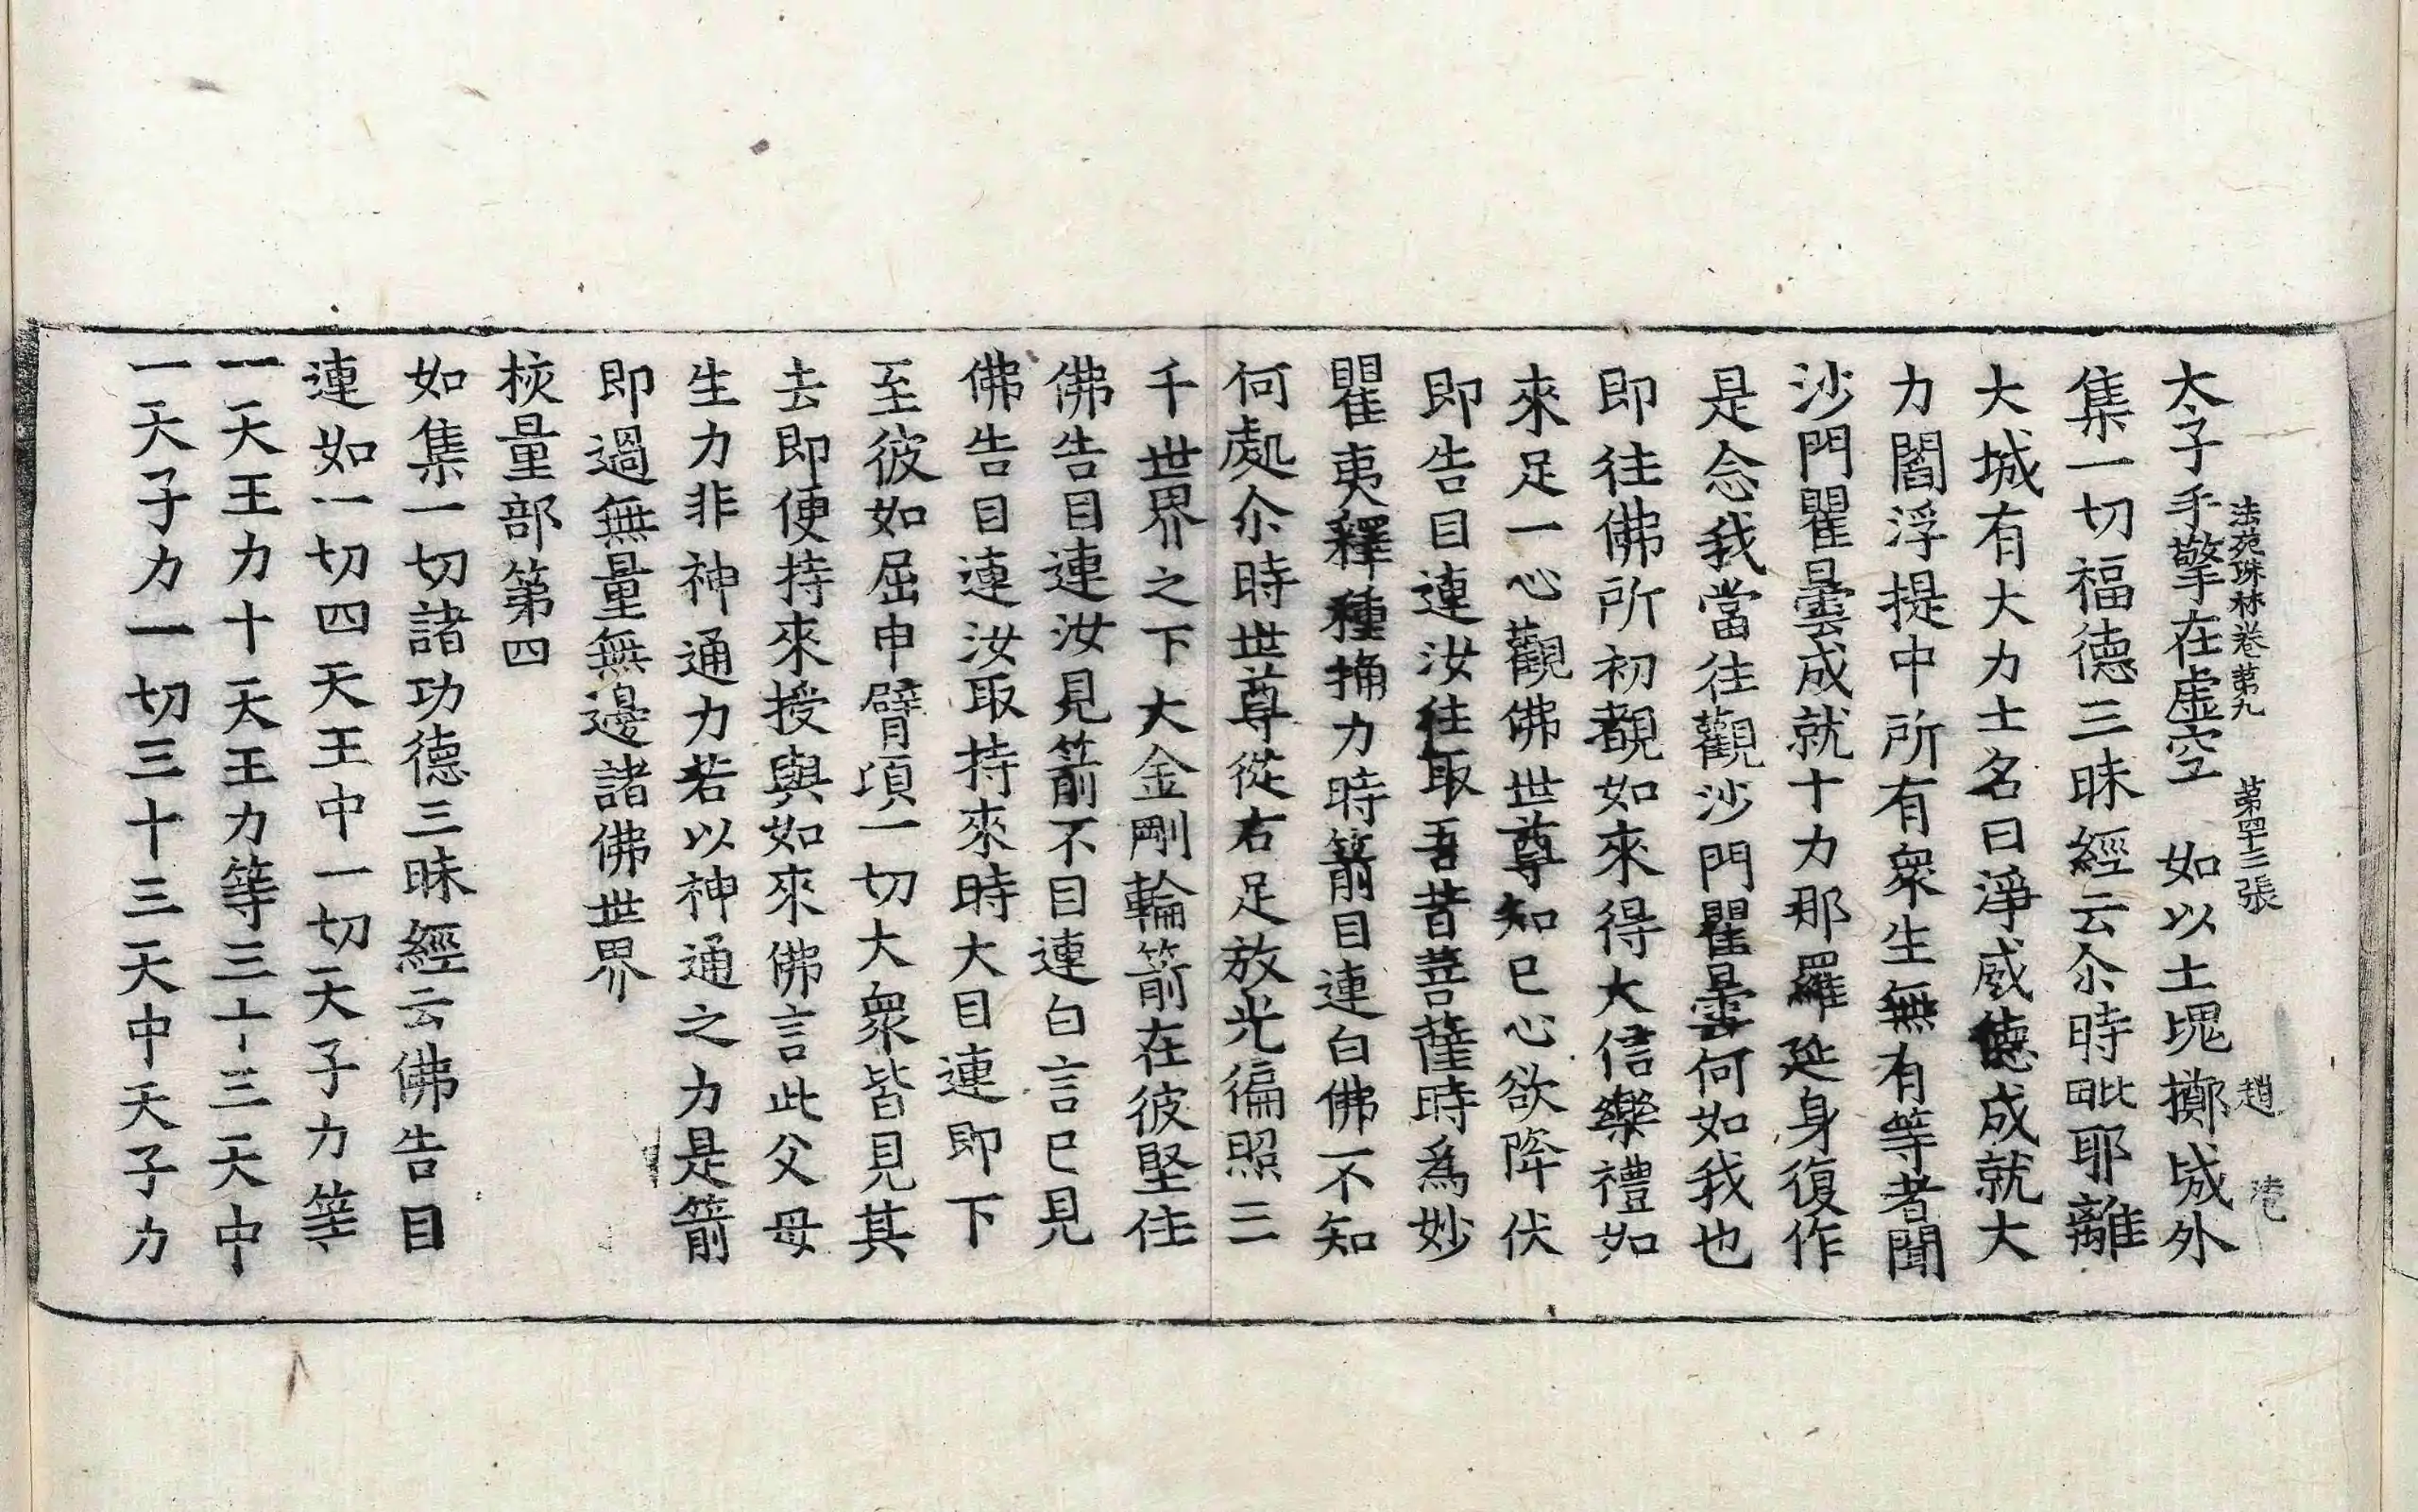 法苑珠林卷苐九　苐四十三張　趙
太子手擎在虛空　如以土塊擲城外
集一切福德三昧經云尒時毗耶離
大城有大力士名曰淨威德成就大
力閻浮提中所有衆生無有等者聞
沙門瞿曇成就十力那羅延身復作
是念我當往觀沙門瞿曇何如我也
即往佛所初覩如來得大信樂禮如
來足一心觀佛世尊知已心欲降伏
即告目連汝往取吾昔菩薩時爲妙
瞿夷釋種捔力時箭目連白佛不知
何處尒時世尊從右足放光徧照三
千世界之下大金剛輪箭在彼堅住
佛告目連汝見箭不目連白言已見
佛告目連汝取持來時大目連即下
至彼如屈申臂項一切大衆皆見其
去即便持來授與如來佛言此父母
生力非神通力若以神通之力是箭
即過無量無邊諸佛世界
校量部第四
如集一切諸功德三昧經云佛告目
連如一切四天王中一切天子力等
一天王力十天王力等三十三天中
一天子力一切三十三天中天子力